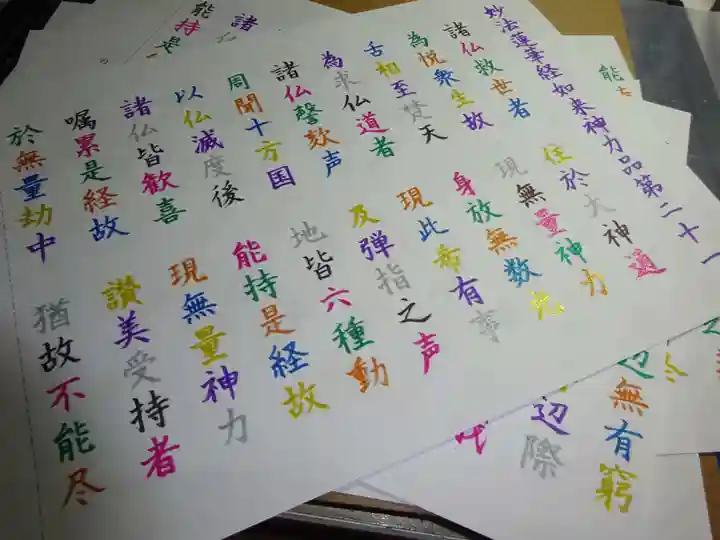 妙法蓮華経如来神力品第二十一
諸仏救世者 住於大神通
為悦衆生故 現無量神力
舌相至梵天 身放無数光
為求仏道者 現此希有事
諸仏謦欬声 及弾指之声
周聞十方国 地皆六種動
以仏滅度後 能持是経故
諸仏皆歓喜 現無量神力
嘱累是経故 讃美受持者
於無量劫中 猶故不能尽
無有窮
辺際
能持是
諸
能